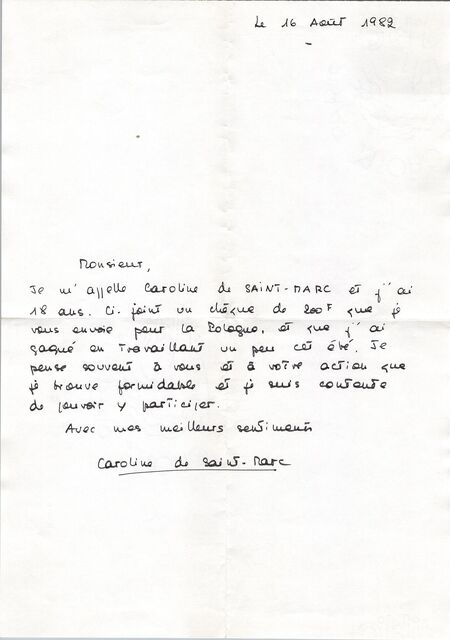 Le 16 Août 1982
Monsieur,
Je m'appelle Caroline de SAINT-MARC et j'ai
18 ans. Ci-joint un chèque de 200F que je
vous envoie pour la Pologne, et que j'ai
gagné en travaillant un peu cet été. Je
pense souvent à vous et à votre action que
je trouve formidable et je suis contente
de pouvoir y participer.
Avec mes meilleurs sentiments
Caroline de Saint-Marc